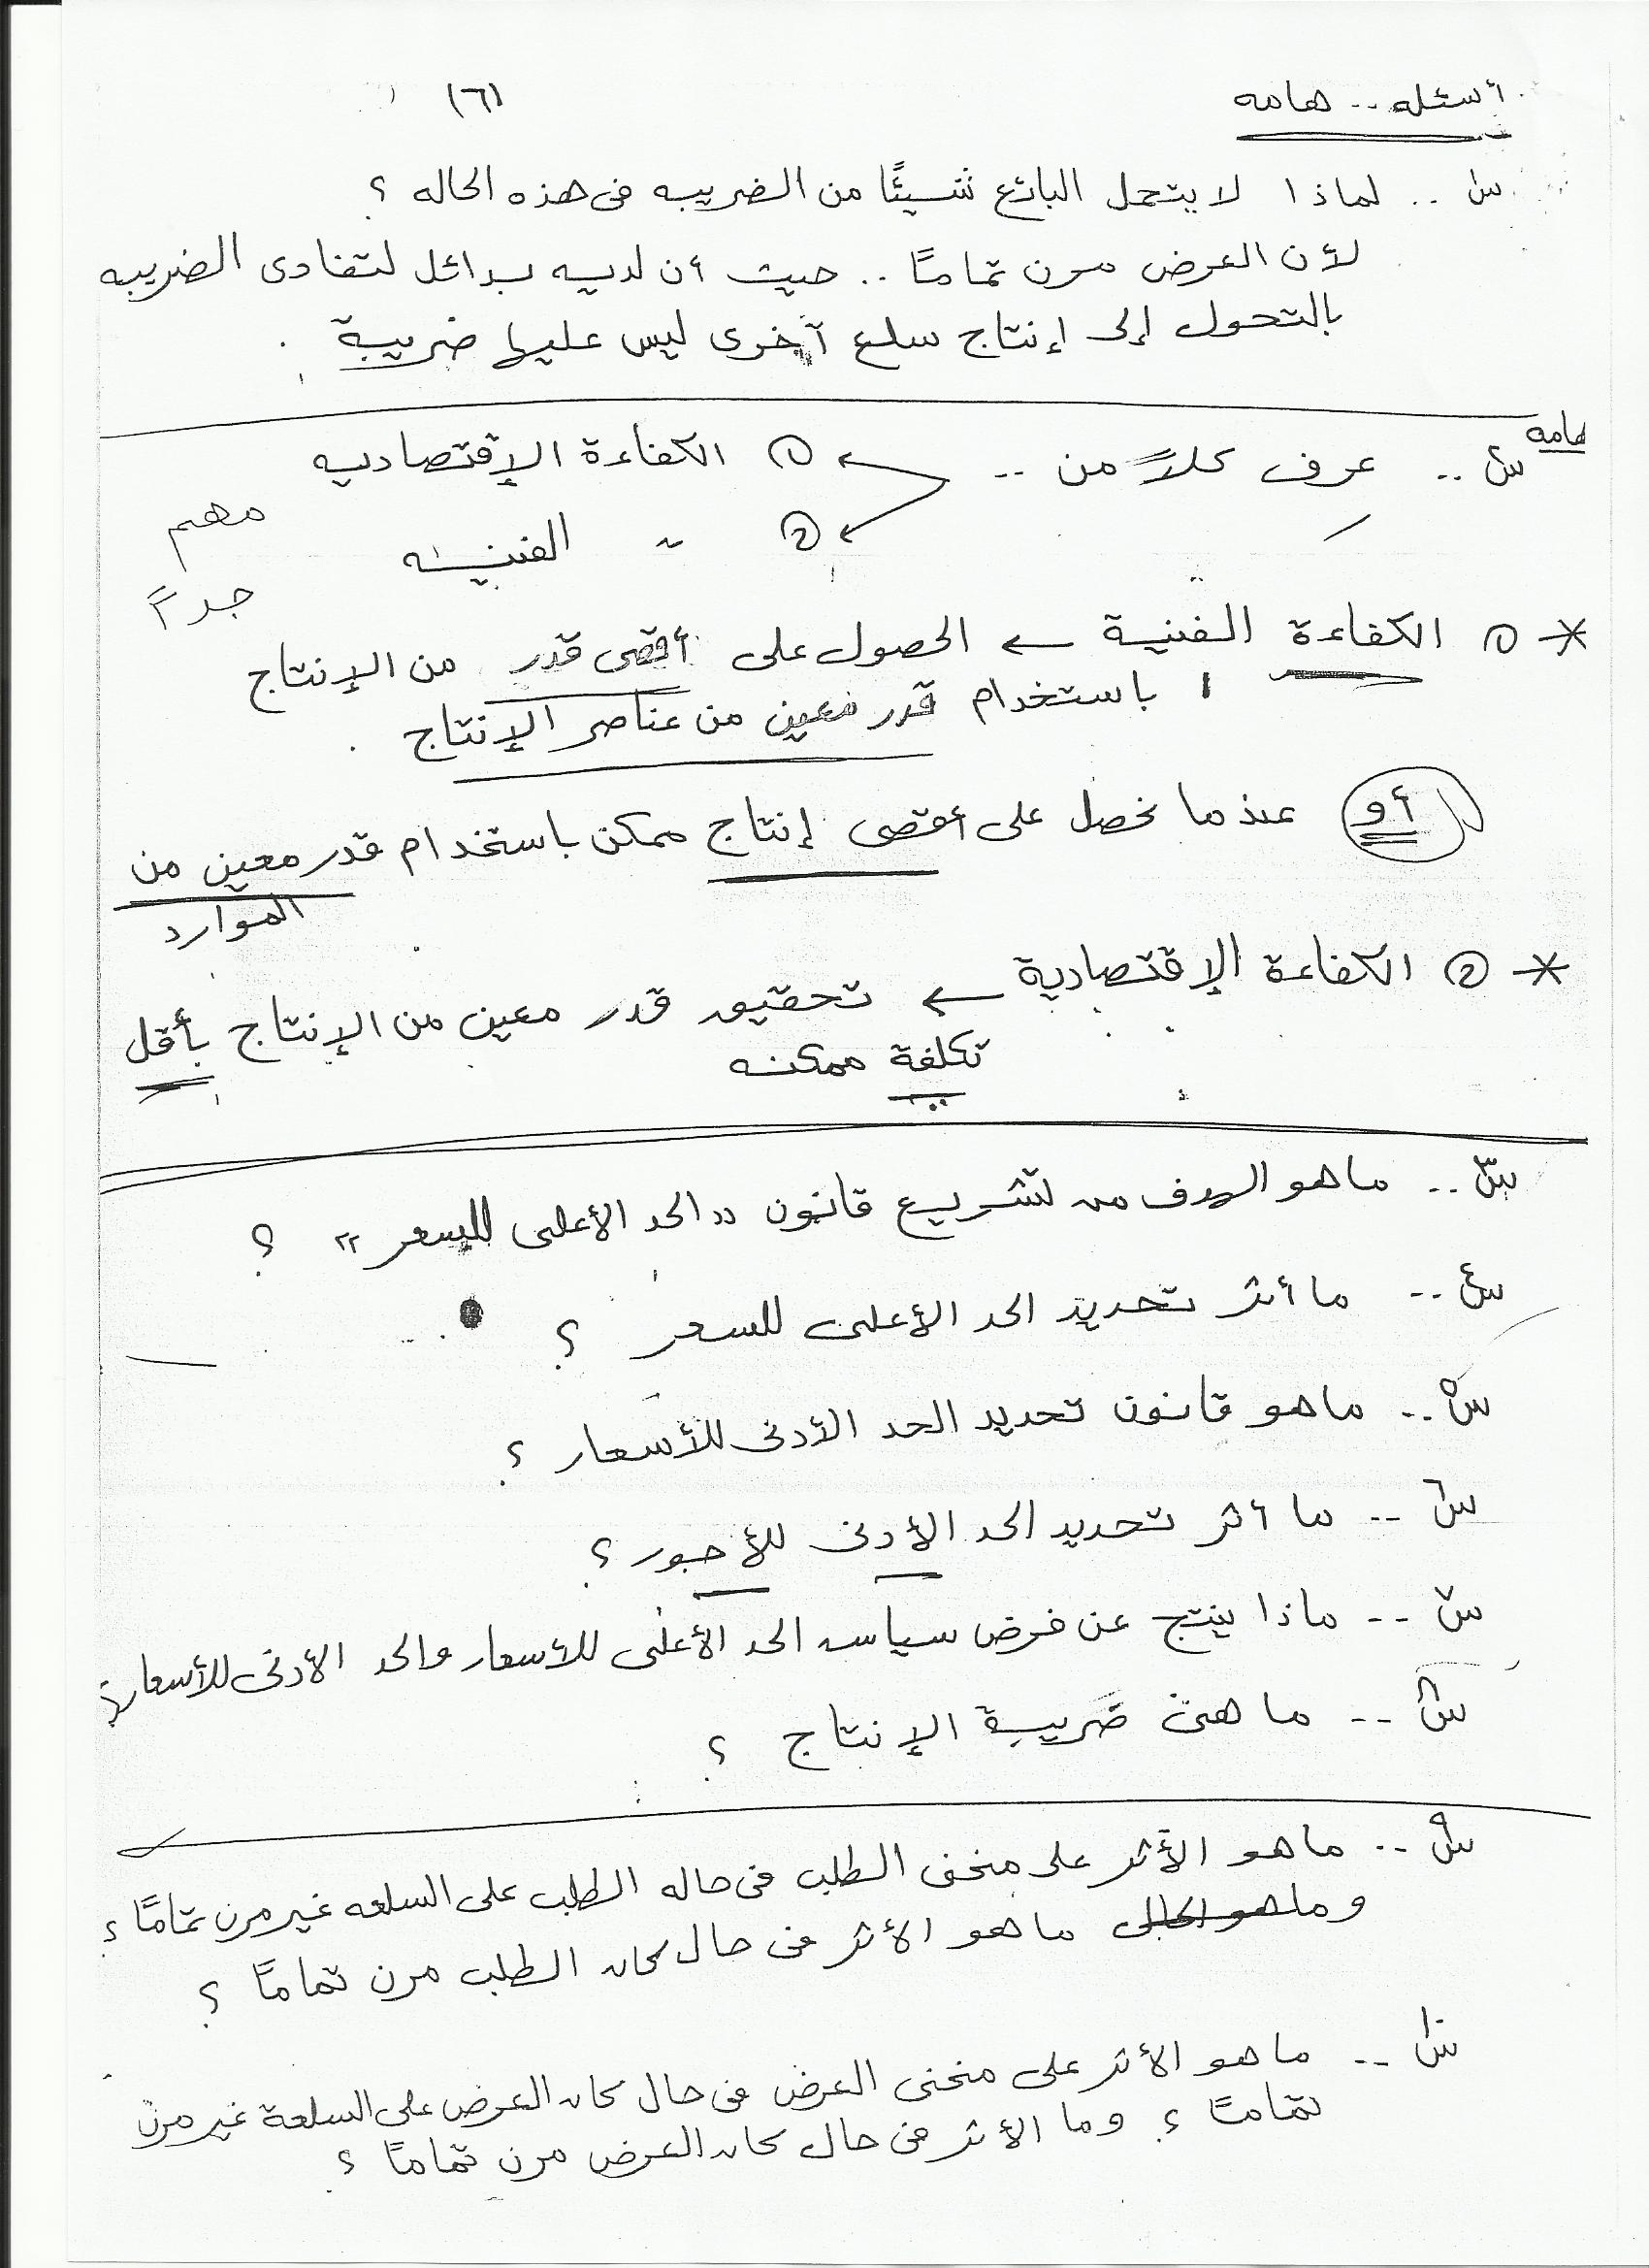 أسئله .. هامه
(٦)
س١ .. لماذا لا يتحمل البائع شيئًا من الضريبه فى هذه الحاله ؟
لأن العرض مرن تمامًا .. حيث أن لديه بدائل لتفادى الضريبه
بالتحول إلى إنتاج سلع آخرى ليس عليها ضريبة .
هامه
س٢ .. عرف كلاً من .. ① الكفاءة الإقتصاديه
② ~ الفنيه
مهم
جداً
* ① الكفاءة الفنية ← الحصول على أقصى قدر من الإنتاج
باستخدام قدر معين من عناصر الإنتاج .
أو عندما نحصل على أقصى إنتاج ممكن باستخدام قدر معين من
الموارد
* ② الكفاءة الإقتصادية ← تحقيق قدر معين من الإنتاج بأقل
تكلفة ممكنه
س٣ .. ما هو الهدف من تشريع قانون " الحد الأعلى للسعر " ؟
س٤ .. ما أثر تحديد الحد الأعلى للسعر ؟
س٥ .. ما هو قانون تحديد الحد الأدنى للأسعار ؟
س٦ .. ما أثر تحديد الحد الأدنى للأجور ؟
س٧ .. ماذا ينتج عن فرض سياسه الحد الأعلى للأسعار والحد الأدنى للأسعار ؟
س٨ .. ما هى ضريبة الإنتاج ؟
س٩ .. ما هو الأثر على منحنى الطلب فى حاله الطلب على السلعه غير مرن تمامًا ؟
وما ما هو الأثر فى حال كان الطلب مرن تمامًا ؟
س١٠ .. ما هو الأثر على منحنى العرض فى حال كان العرض على السلعة غير مرن
تمامًا ؟ وما الأثر فى حال كان العرض مرن تمامًا ؟